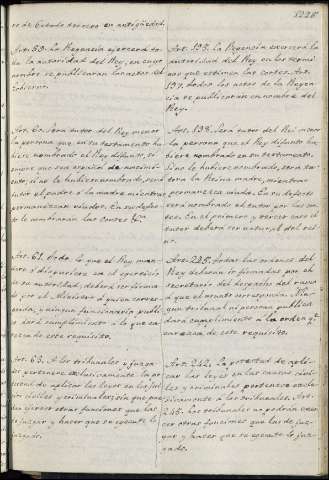 ro de Estado tercero en antigüedad.
Art. 59. La Regencia ejercerá to-
da la autoridad del Rey, en cuyo
nombre se publicaran los actos del
Gobierno.
Art. 60. Será tutor del Rey menor
la persona que en su testamento hu-
biere nombrado el Rey difunto, si-
empre que sea español de nacimi-
ento; si no le hubiere nombrado, será
tutor el padre o la madre mientras
permanezcan viudos. En su defec-
to le nombraran las Cortes &ª
Art. 61. Todo lo que el Rey man-
dare o dispusiere en el ejercicio
de su autoridad, deberá ser firma-
do por el Ministro á quien corres-
ponda, y ningun funcionario publi-
co dará cumplimiento á lo que ca-
rezca de este requisito.
Art. 63. A los tribunales y juzga-
dos pertenece exclusivamente la po-
testad de aplicar las leyes en los jui-
cios civiles y criminales sin que pue-
dan ejercer otras funciones que las
de juzgar y hacer que se ejecute lo
juzgado.
1226
Art. 195. La Regencia ejercerá la
autoridad del Rey en los termi-
nos que estimen las Cortes. Art.
197. Todos los actos de la Regen-
cia se publicaran en nombre del
Rey.
Art. 198. Será tutor del Rei menor
la persona que el Rey difunto hu-
biere nombrado en su testamento.
Si no le hubiere nombrado, será tu-
tora la Reina madre, mientras
permanezca viuda. En su defecto
será nombrado el tutor por las cor-
tes. En el primero y tercer caso el
tutor deberá ser natural del rei-
no.
Art. 225. Todas las ordenes del
Rey deberan ir firmadas por el
secretario del despacho del ramo
á que el asunto corresponda. Nin-
gun tribunal ni persona publica
dará cumplimiento á la orden qe.
carezca de este requisito.
Art. 242. La potestad de apli-
car las leyes en las causas civi-
les y criminales pertenece exclu-
sivamente á los tribunales. Art.
245. Los tribunales no podrán ejer-
cer otras funciones que las de juz-
gar y hacer que se ejecute lo juz-
gado.